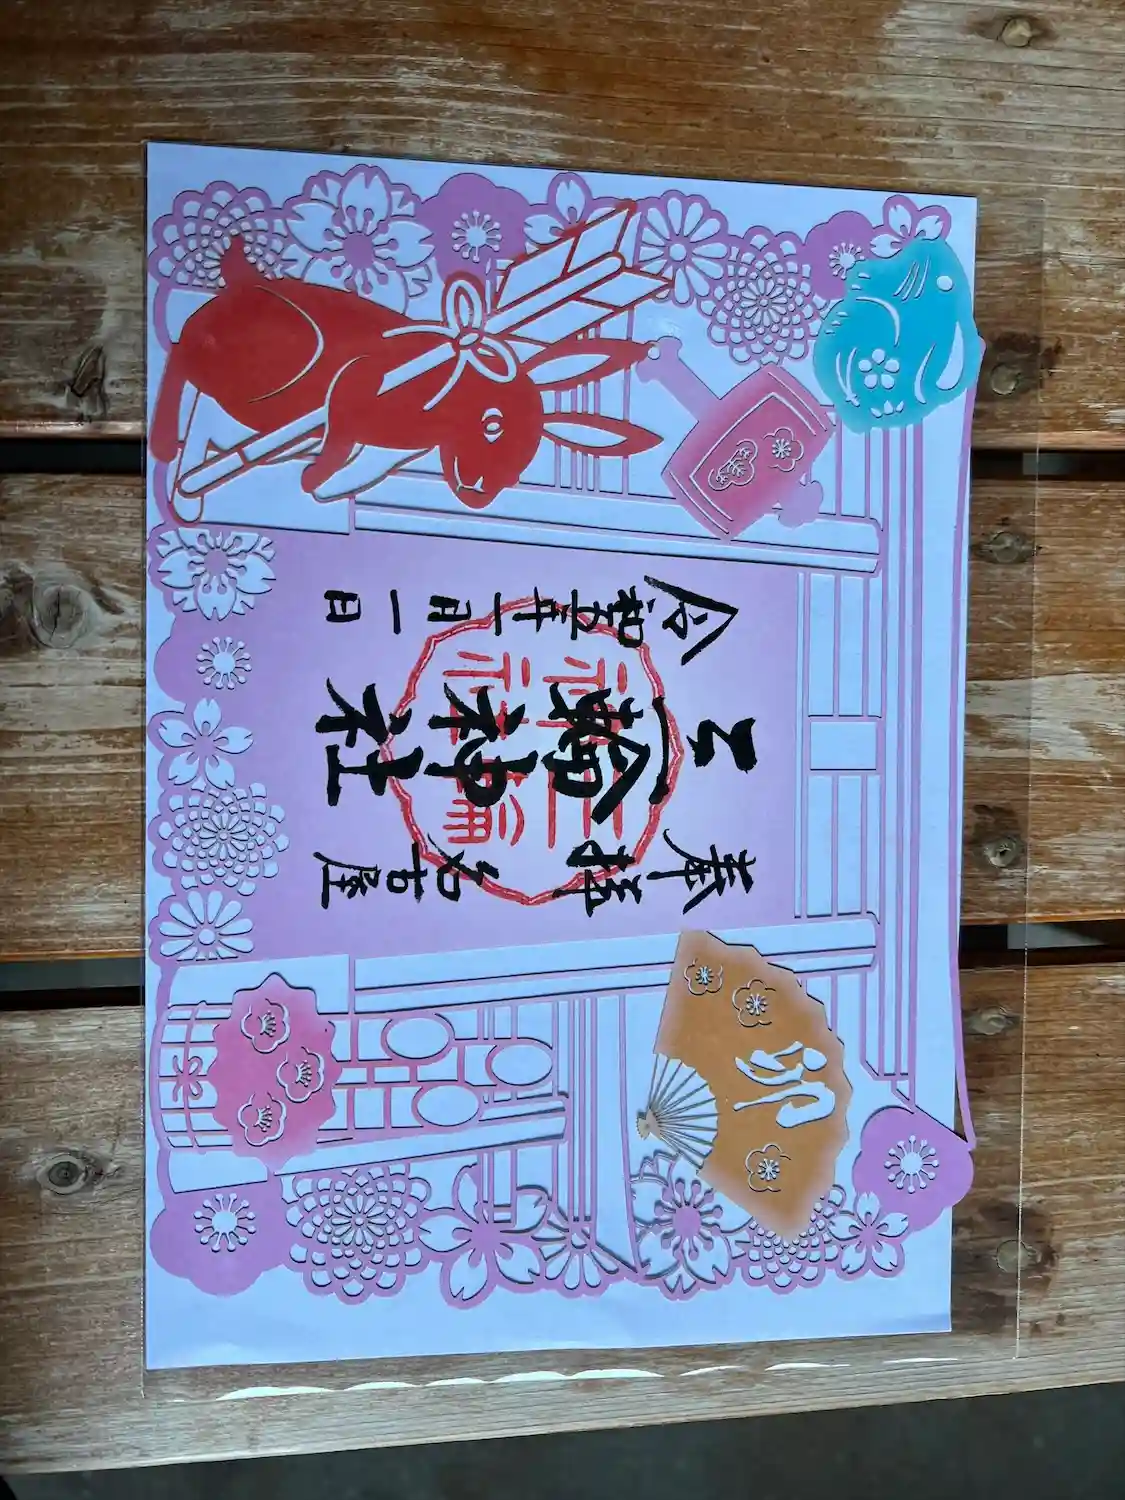 奉拝 名古屋
三輪神社
令和五年一月一日
三輪
神社
卯